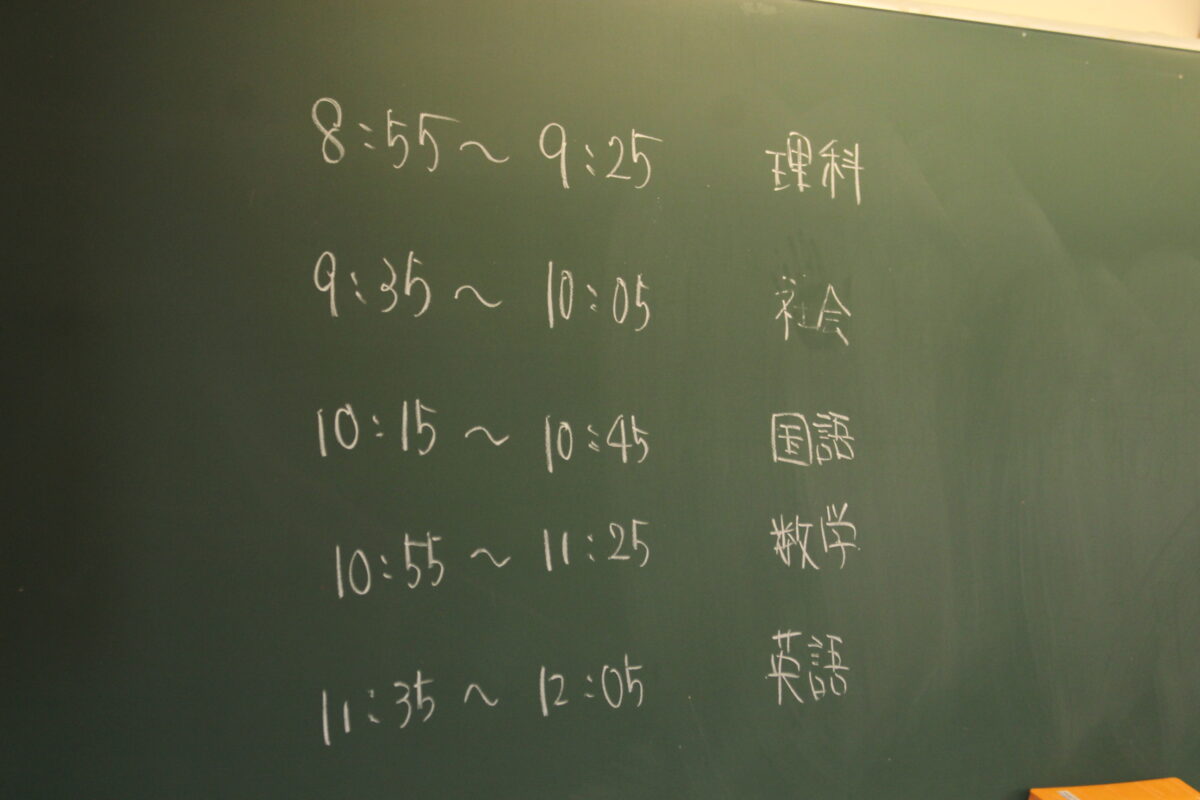 8:55～9:25 理科
9:35～10:05 社会
10:15～10:45 国語
10:55～11:25 数学
11:35～12:05 英語